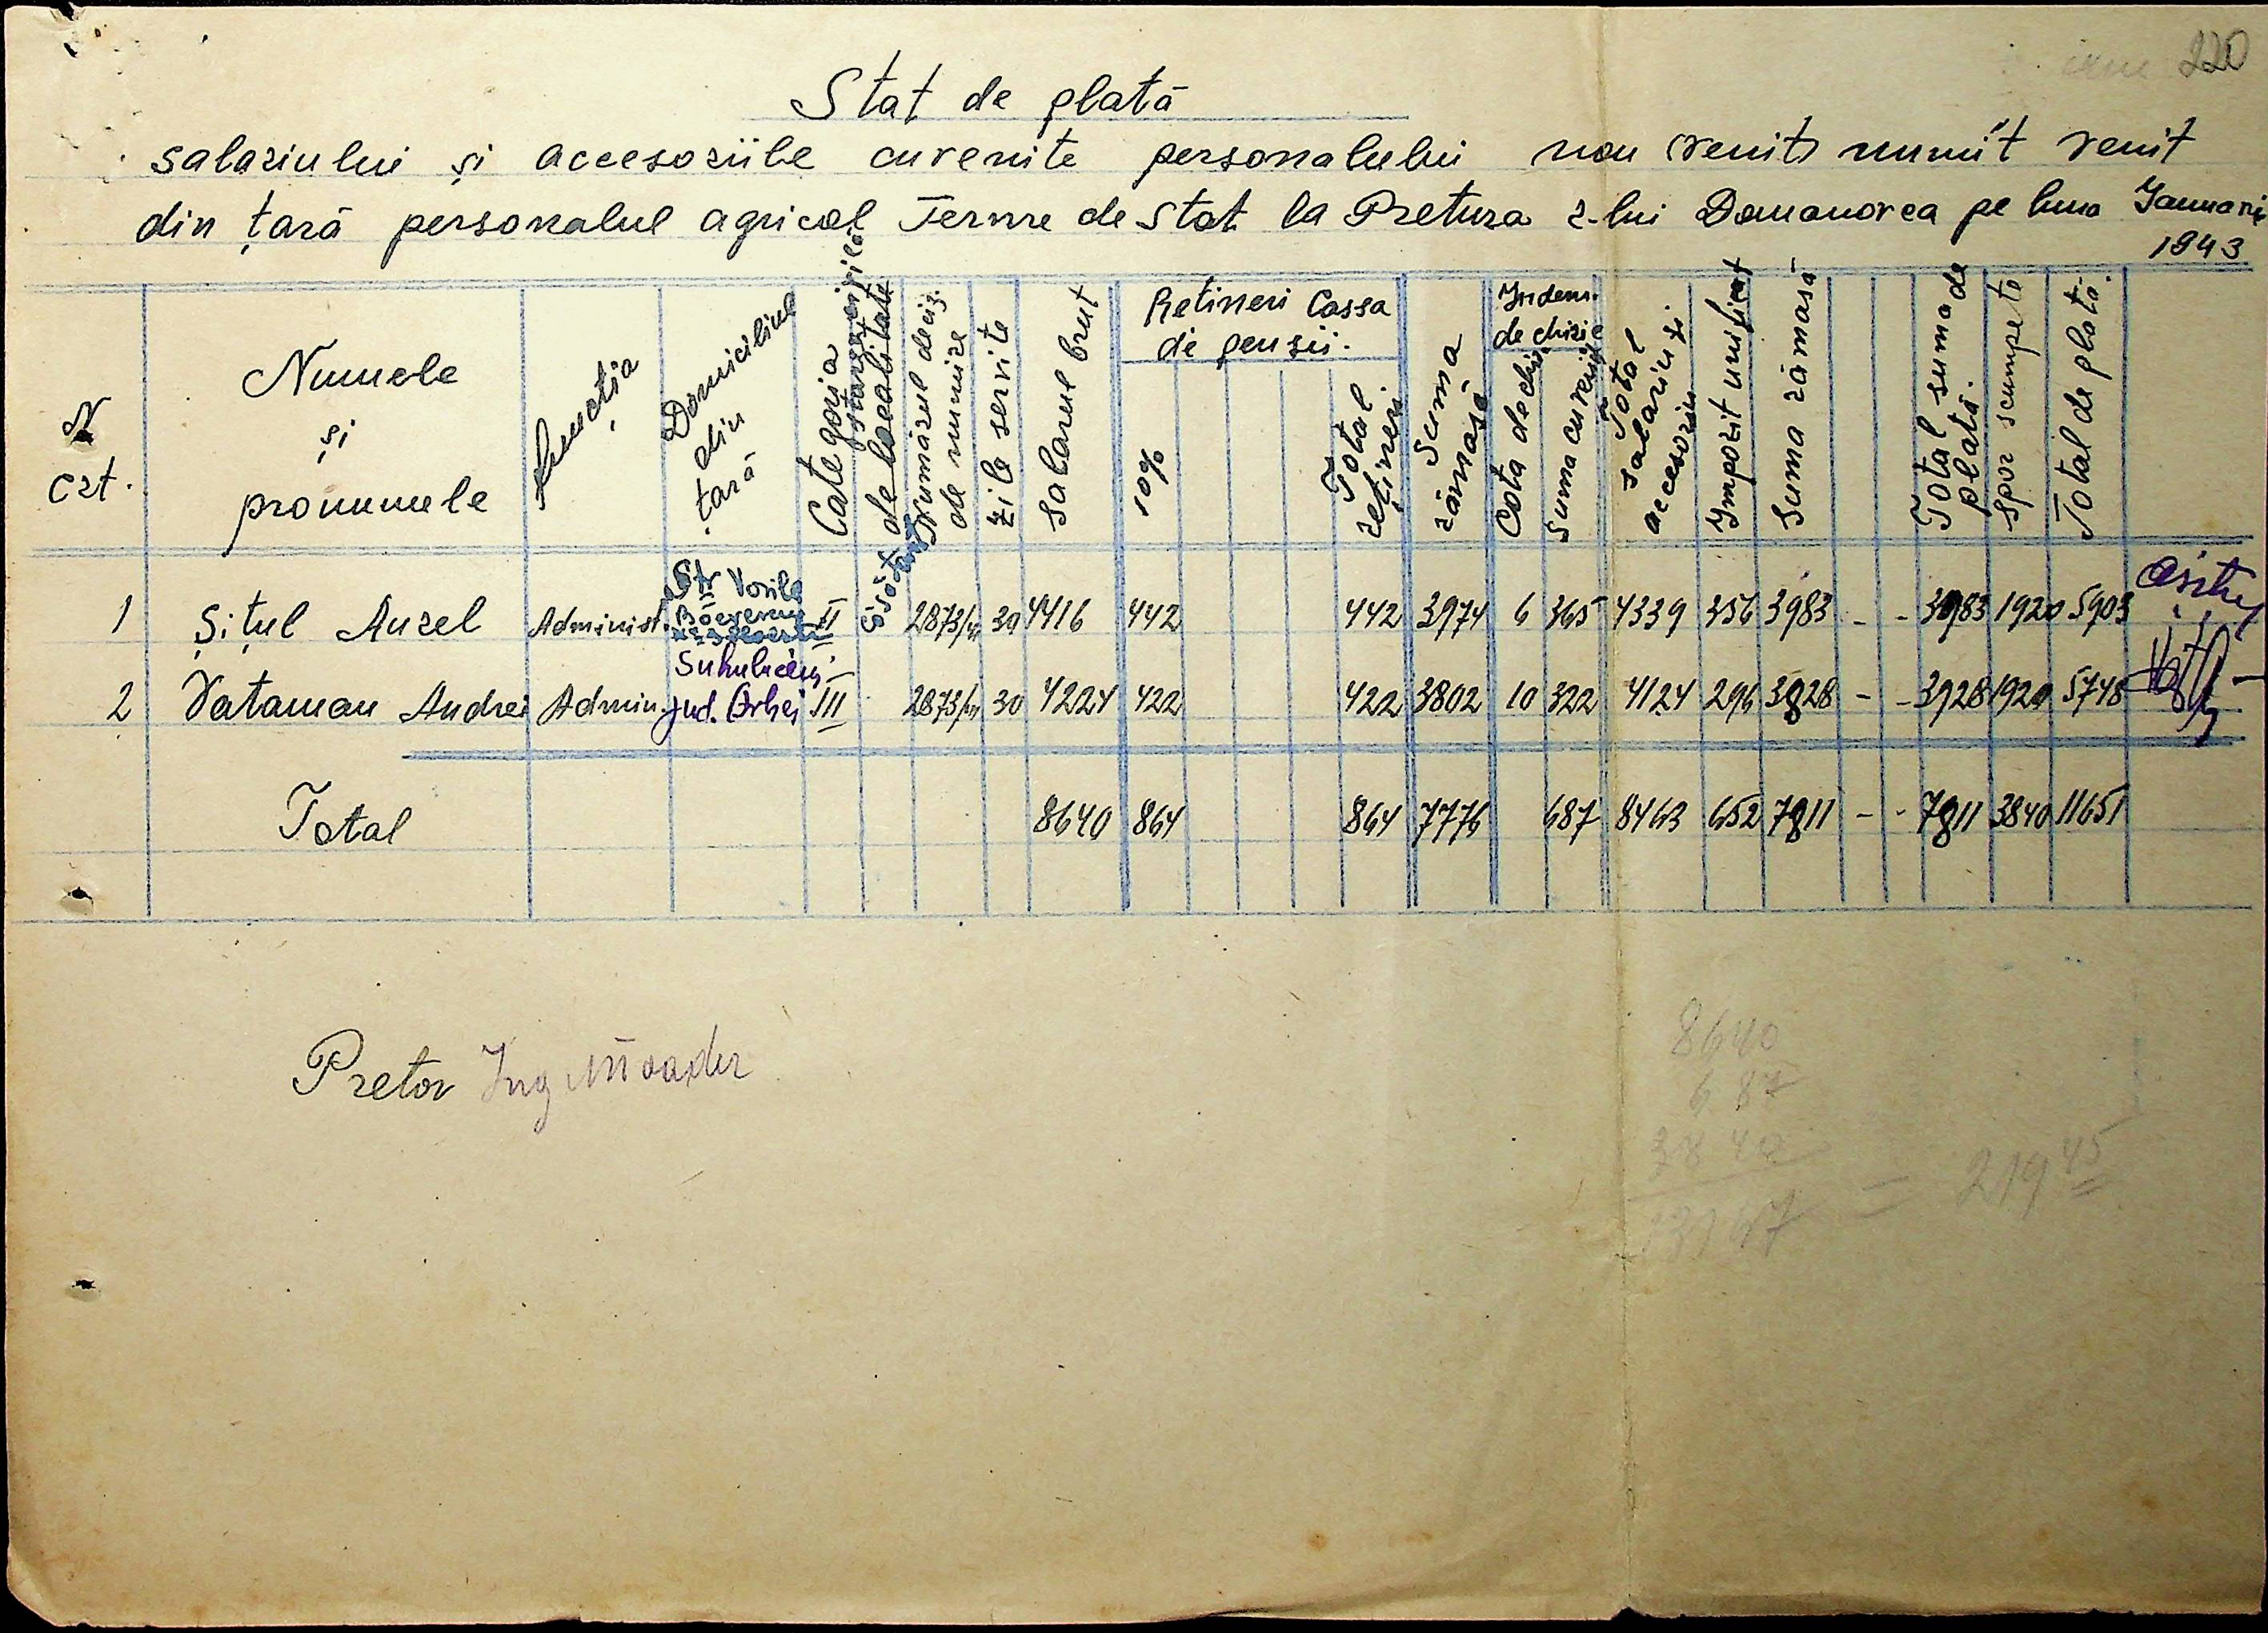 220
Stat de plată
salariului și accesoriile cuvenite personalului nou (venit) numit venit
din țară personalul agricol Ferme de Stat la Pretura r-lui Domanovca pe luna Ianuarie
1943
N crt.
Numele și pronumele
Functia
Domiciliul din țară
Categoria de localitate
starea civilă
Numărul deciz. de numire
zile servite
Salarul brut
Retineri Cassa de pensii.
10%
Total rețineri
Suma rămasă
Indem. de chirie
Cota de chir.
Suma cuvenite
Total salariu și accesorii
Impozit unificat
Suma rămasă
Total suma de plată.
Spor scumpete
Total de plată.
1 Șițul Aurel Administ. Str Vasile II căsătorit 2873/ 30 4416 442 442 3974 6 365 4339 356 3983 - - 3983 1920 5903
2 Vataman Andrei Admin. jud. Orhei III 2873/ 30 4224 422 422 3802 10 322 4124 296 3828 - - 3928 1920 5748
Total 8640 864 864 7776 687 8463 652 7811 - - 7811 3840 11651
Pretor Ing
8640
687
3840
13167 = 219 45